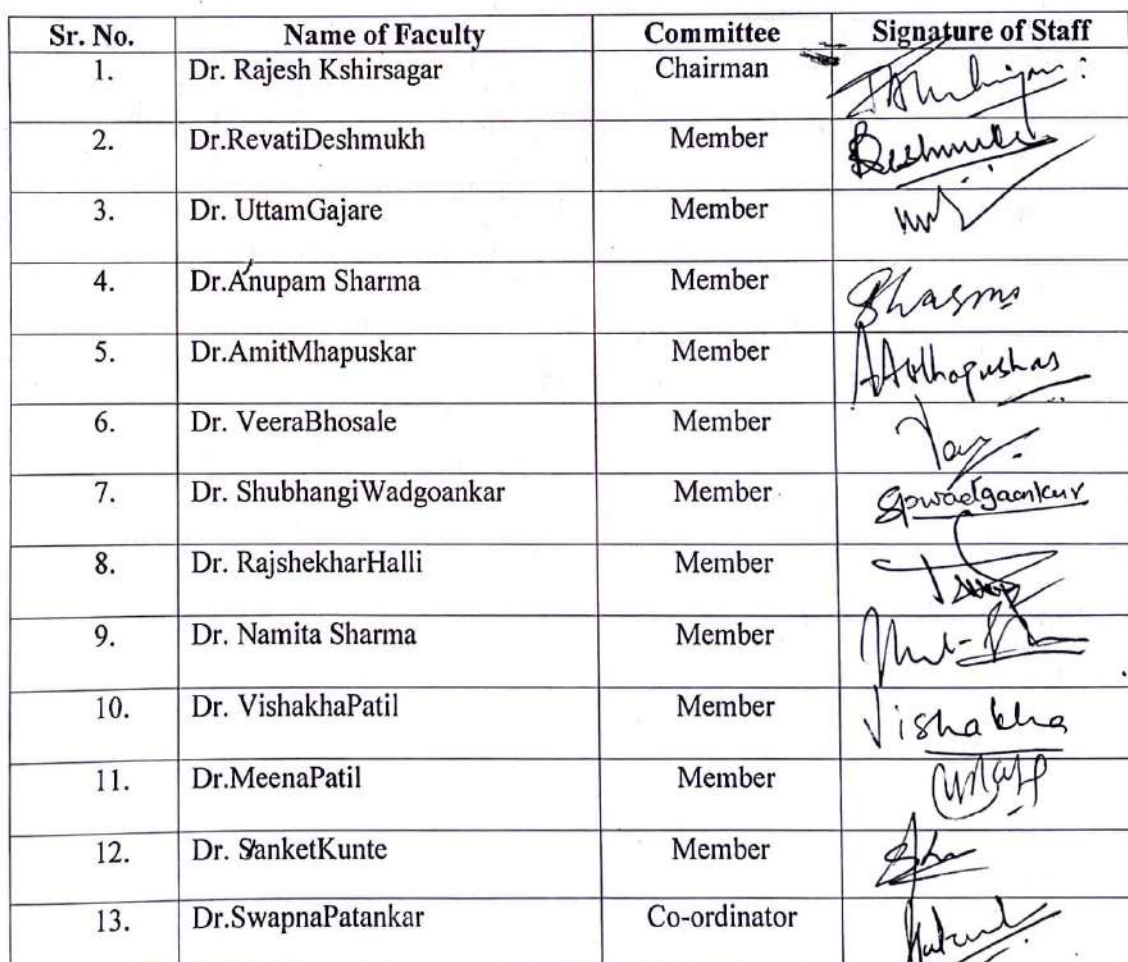 Sr. No. Name of Faculty Committee Signature of Staff
1. Dr. Rajesh Kshirsagar Chairman
2. Dr.RevatiDeshmukh Member Deshmukh
3. Dr. UttamGajare Member
4. Dr.Anupam Sharma Member Sharma
5. Dr.AmitMhapuskar Member AAMhapuskar
6. Dr. VeeraBhosale Member
7. Dr. ShubhangiWadgoankar Member spwadgaonkar
8. Dr. RajshekharHalli Member
9. Dr. Namita Sharma Member
10. Dr. VishakhaPatil Member Vishakha
11. Dr.MeenaPatil Member
12. Dr. SanketKunte Member
13. Dr.SwapnaPatankar Co-ordinator